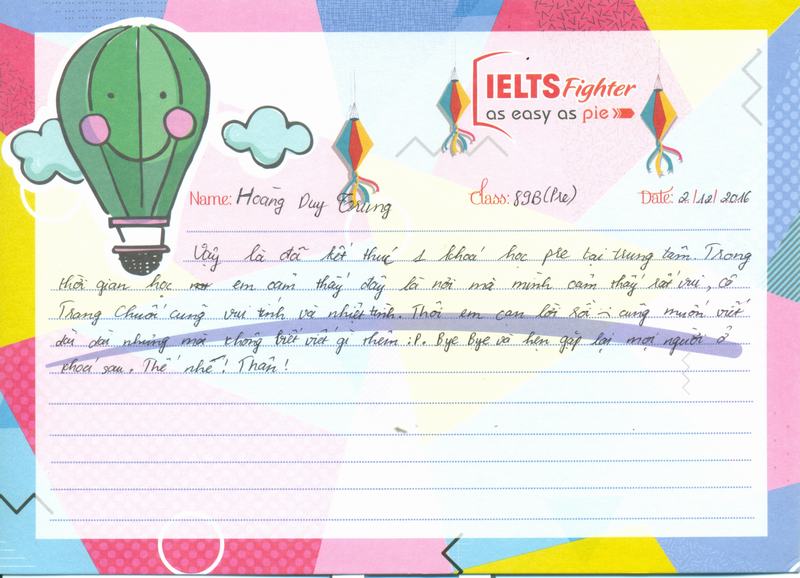 IELTS Fighter
as easy as pie
Name: Hoàng Duy Trung Class: 89B(Pre) Date: 2/12/2016
Vậy là đã kết thúc 1 khoá học pre tại trung tâm. Trong
thời gian học em cảm thấy đây là nơi mà mình cảm thấy rất vui, cô
Trang Chuối cũng vui tính và nhiệt tình. Thôi em cạn lời rồi cũng muốn viết
dài dài nhưng mà không biết viết gì thêm :P. Bye Bye và hẹn gặp lại mọi người ở
khoá sau. Thế nhé! Thân!